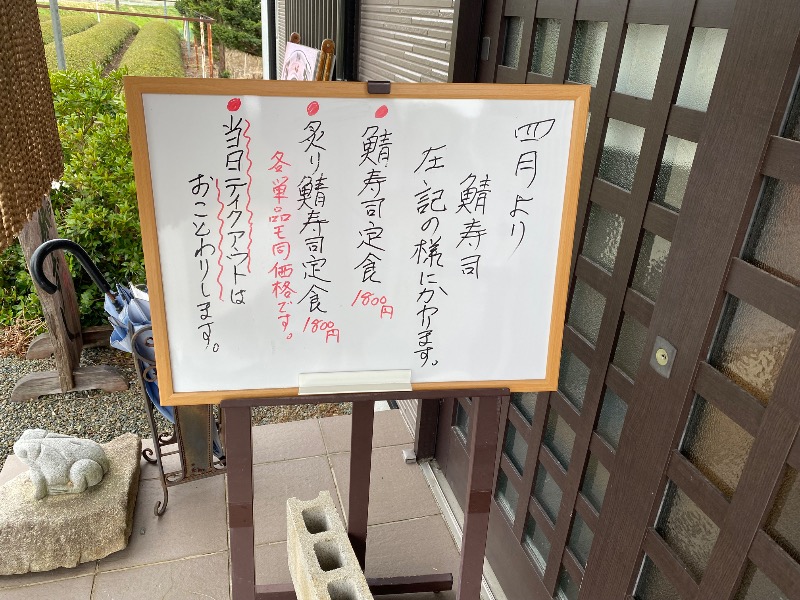 四月より
鯖寿司
左記の様にかわります。
鯖寿司定食 1800円
炙り鯖寿司定食 1800円
各単品も同価格です。
当日テイクアウトは
おことわりします。